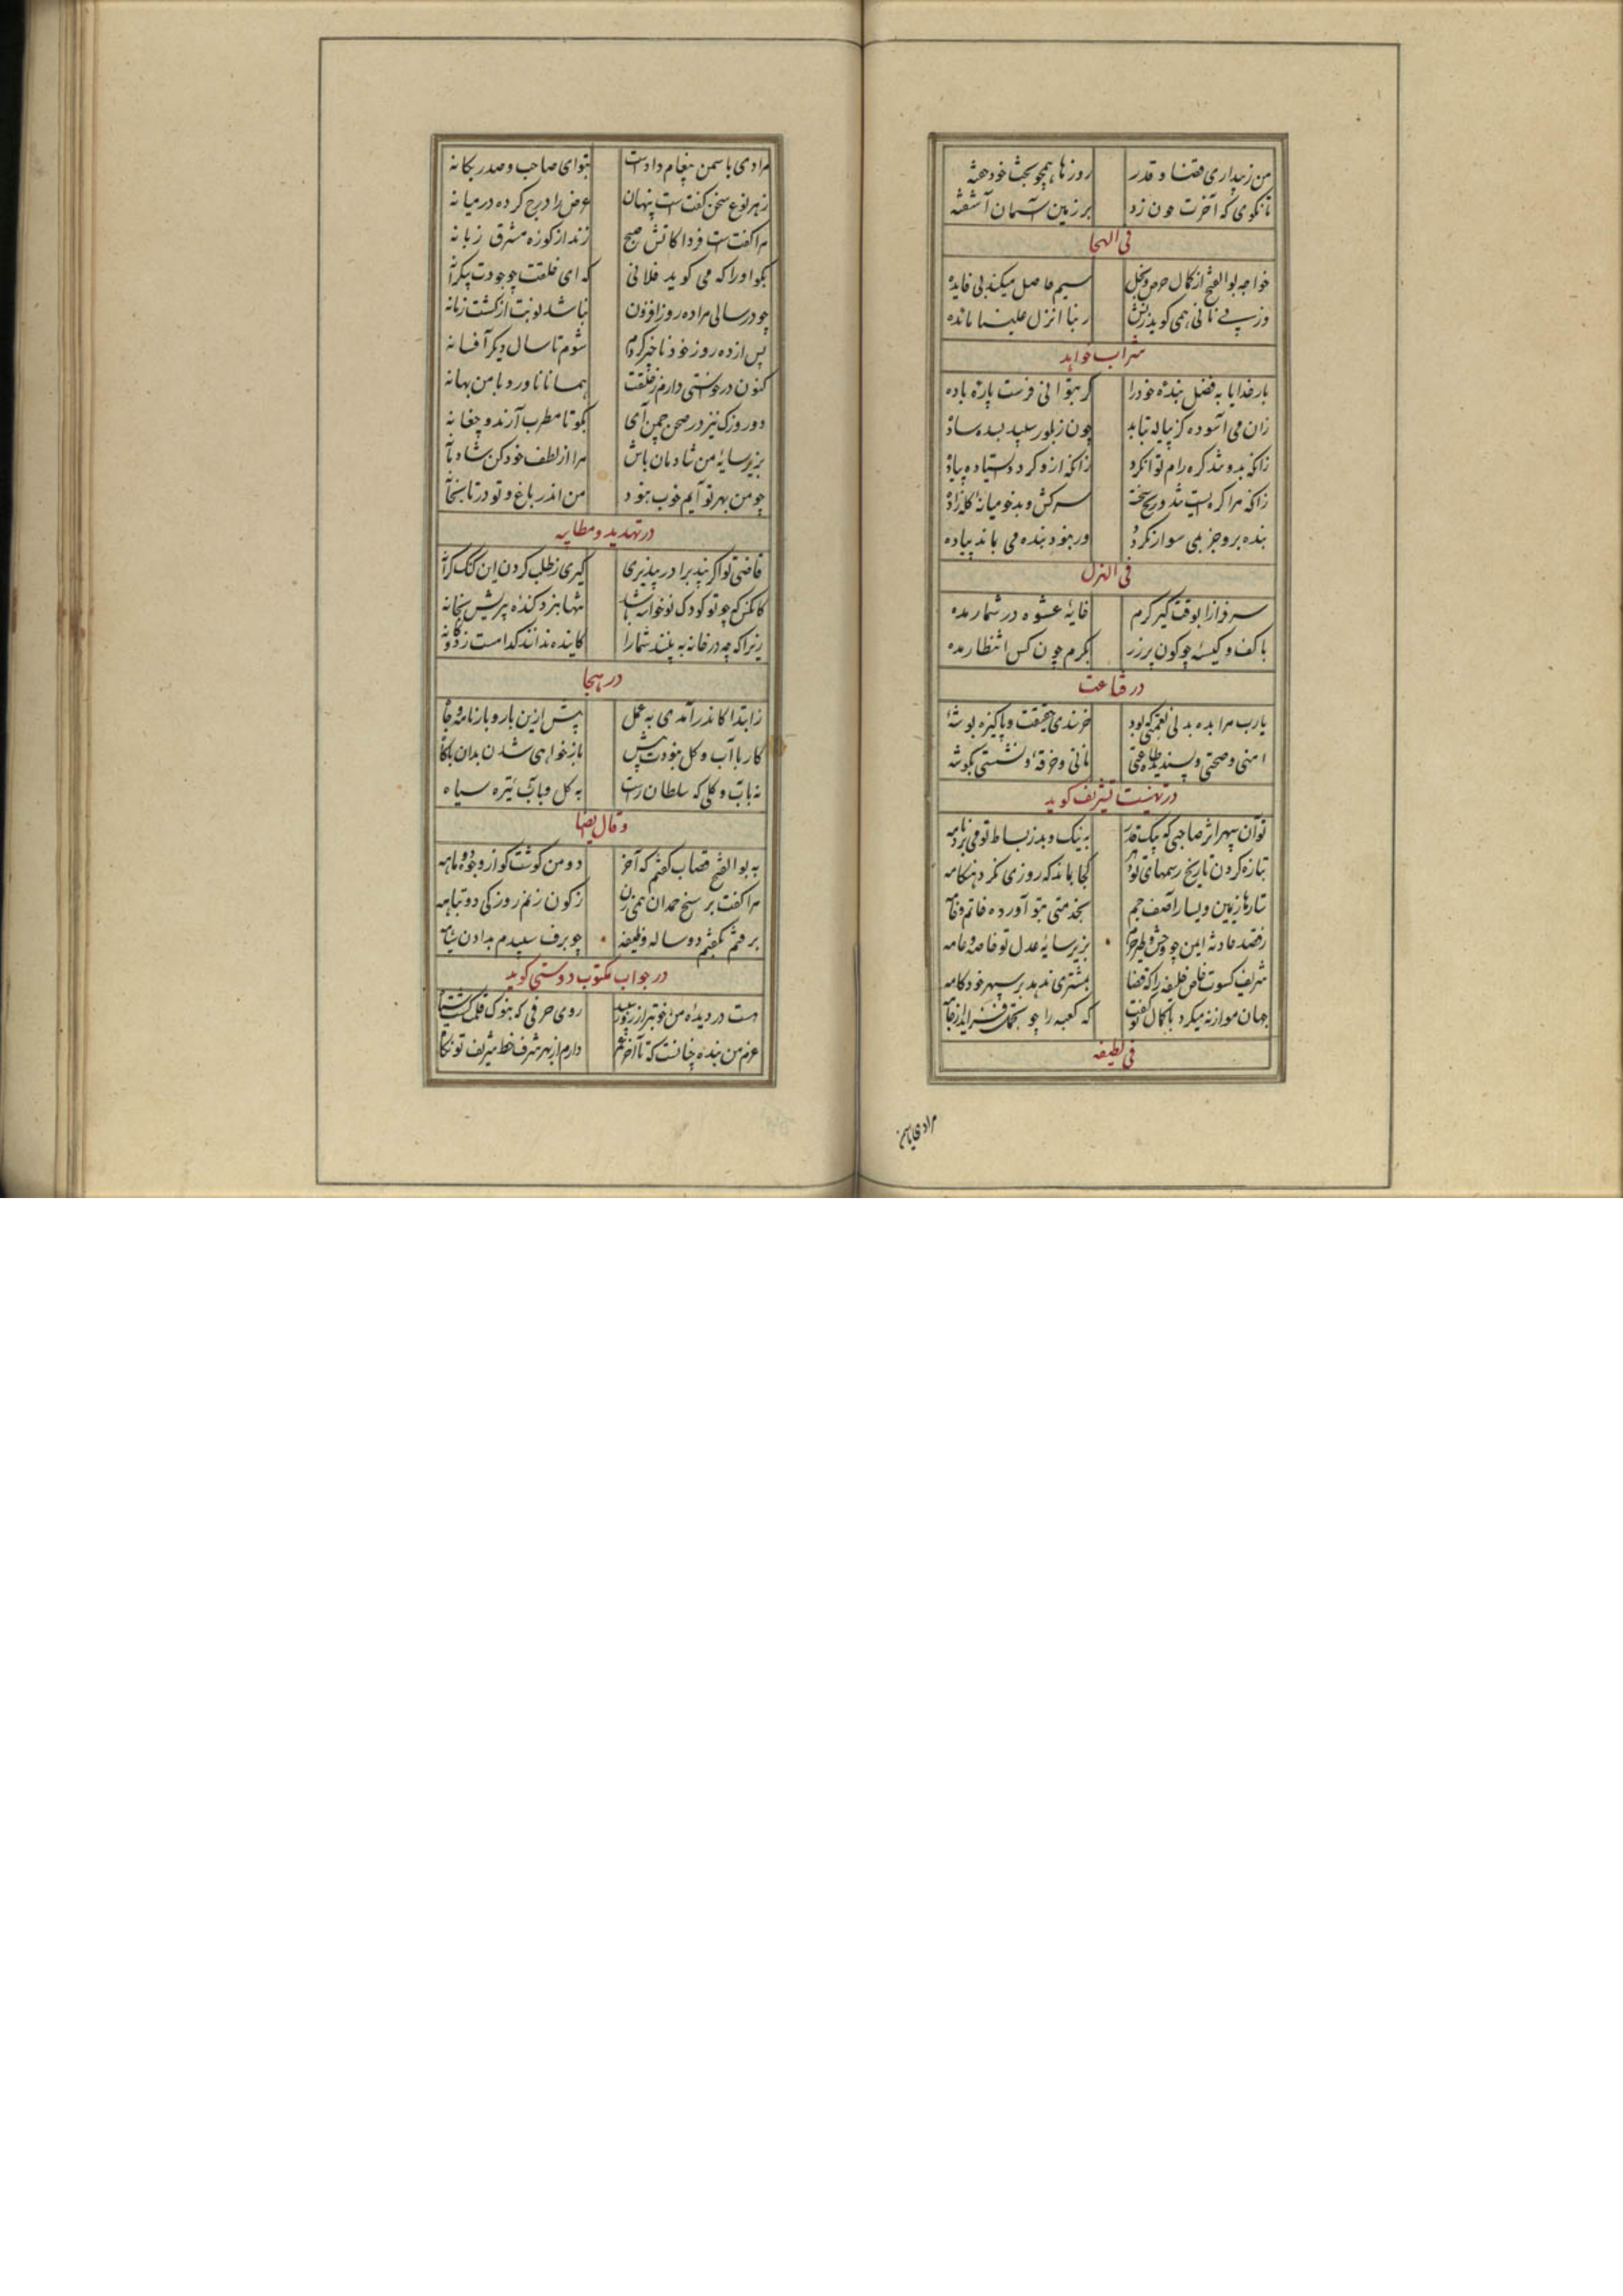 من ز بیداری قضا و قدر روزها همچو بخت خود خفته
تا نگوی که آخرت چون زد بر زمین آسمان آشفته
فی الهجا
خواجه بوالفتح از کمال حرص و بخل سیم حاصل میکند بی فایده
وز پی نانی همی گوید زنش ربنا انزل علینا مائده
شراب خواهد
بار خدایا به فضل بنده خود را گر بتوانی فرست پاره باده
زان می آسوده کز پیاله بتابد چون ز بلور سپید بسد ساده
زانکه بدو شد کره رام توانکرد زانکه ازو گردد ایستاده پیاده
زانکه مرا کره ایست تند سرکش و بدخو میانه گله زاده
بنده برو جز بمی سوار نگردد ور نبود بنده می بماند پیاده
فی الهزل
سرفرازا بوقت گیر کرم خایه عشوه در شمار مده
با کف و کیسه چو کون پر زر بکرم چون کس انتظار مده
در قناعت
یارب مرا بده بدل نعمتی که بود خرسندی حقیقت و پاکیزه توشه
امنی و صحتی و پسندیده طاعتی نانی و خرقه و نشستی بگوشه
در تهنیت تشریف گوید
تو آن سپهر اثر صاحبی که پیک قدر به نیک و بد ز بساط تو می برد نامه
بتازه کردن تاریخ رسمهای تو کجا بماند که روزی نکرد هنگامه
ستارها ز یمین و یسار آصف جم بخدمتی بتو آورده خاتم و خامه
ز قصد حادثه ایمن چو وحش و طیر حرم بزیر سایه عدل تو خاصه و عامه
شریف کسوت خاص خلیفه را که قضا بمشتری ندهد بر سپهر خودکامه
جهان موازنه میکرد با کمال تو گفت که کعبه را چو تجمل فزاید از جامه
فی لطیفه
مرا دی یاسمن
مرا دی یاسمن پیغام دادست بتو ای صاحب و صدر یگانه
ز هر نوع سخن گفتست پنهان عرض را درج کرده در میانه
مرا گفتست فردا کاتش صبح زند از کوزه مشرق زبانه
بگو او را که می گوید فلانی که ای خلقت چو جودت بیکرانه
چو در سالی مرا ده روز افزون نباشد نوبت از گشت زمانه
پس از ده روز خود ناچیز گردم شوم تا سال دیگر آفسانه
کنون درخواستی دارم ز خلقت همانا ناورد با من بهانه
دو روزک نیز در صحن چمن آی بگو تا مطرب آرند و چغانه
بزیر سایه من شادمان باش مرا از لطف خود کن شادمانه
چو من بهر تو آیم خوب نبود من اندر باغ و تو در تابخانه
در تهدید و مطایبه
قاضی تو اگر پند برادر بپذیری گیری ز طلب کردن این گنگ کرانه
کانکس که چو تو کودک نوخواسته باشد تنها نبرد گنده پیرش بخانه
زیرا که چو در خانه به بیند شما را کاینده نداند کدامست زن دوگانه
در هجا
ز ابتدا کاندر آمدی به عمل پیش ازین بار و بارنامه و جاه
کار با آب و گل نبودت بیش باز خواهی شدن بدان ناگاه
نه بآب و گلی که سلطان راست به گل و بآب تیره سیاه
و قال ایضا
به بوالفتح قصاب گفتم که آخر دو من گوشت کو از وجوه دو ماهه
مرا گفت بر سیخ حمدان همی زن ز کون زنم روزکی دو تباهه
برفتم بگفتم دو ساله وظیفه چو برف سپیدم بدادن سیاهه
در جواب مکتوب دوستی گوید
هست در دیده من خوبتر از روی سپید روی حرفی که بنوک قلمت گشت سیاه
عزم من بنده چنانست که تا آخر عمر دارم از بهر شرف خط شریف تو نگاه